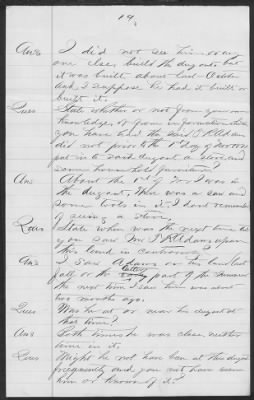 19.
Ans I did not see him or any
one else build the dugout but
it was built about last October
and I suppose he had it built or
built it.
Ques State whether or not from your own
knowledge or from information which
you have had the said J R Adams
did not prior to the 1st day of
put in to said dugout a stove and
some household furniture?
Ans About the 1st of I was in
the dugout, there was a saw and
some tools in it. I dont remember
of seeing a stove.
Ques State when was the next time
you saw Mr J R Adams upon
this land in controversy?
Ans I saw Adams on the land last
fall, or the latter part of the summer
the next time I saw him was about
two months ago.
Ques Was he at or near his dugout at
that time?
Ans Both times he was close neither
time in it.
Ques Might he not have been at this dugout
frequently and you not have seen
him or known of it?